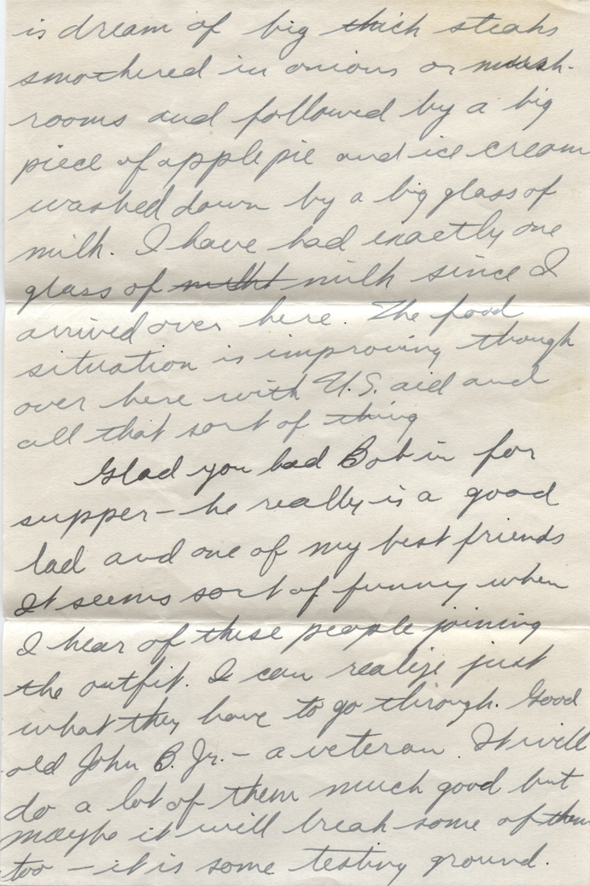 is dream of big thick steaks
smothered in onions or mush-
rooms and followed by a big
piece of apple pie and ice cream
washed down by a big glass of
milk. I have had exactly one
glass of milk since I
arrived over here. The food
situation is improving though
over here with U.S. aid and
all that sort of thing
Glad you had Bob in for
supper – he really is a good
lad and one of my best friends
It seems sort of funny when
I hear of these people joining
the outfit. I can realize just
what they have to go through. Good
old John B. Jr. – a veteran. It will
do a lot of them much good but
maybe it will break some of them
too – it is some testing ground.